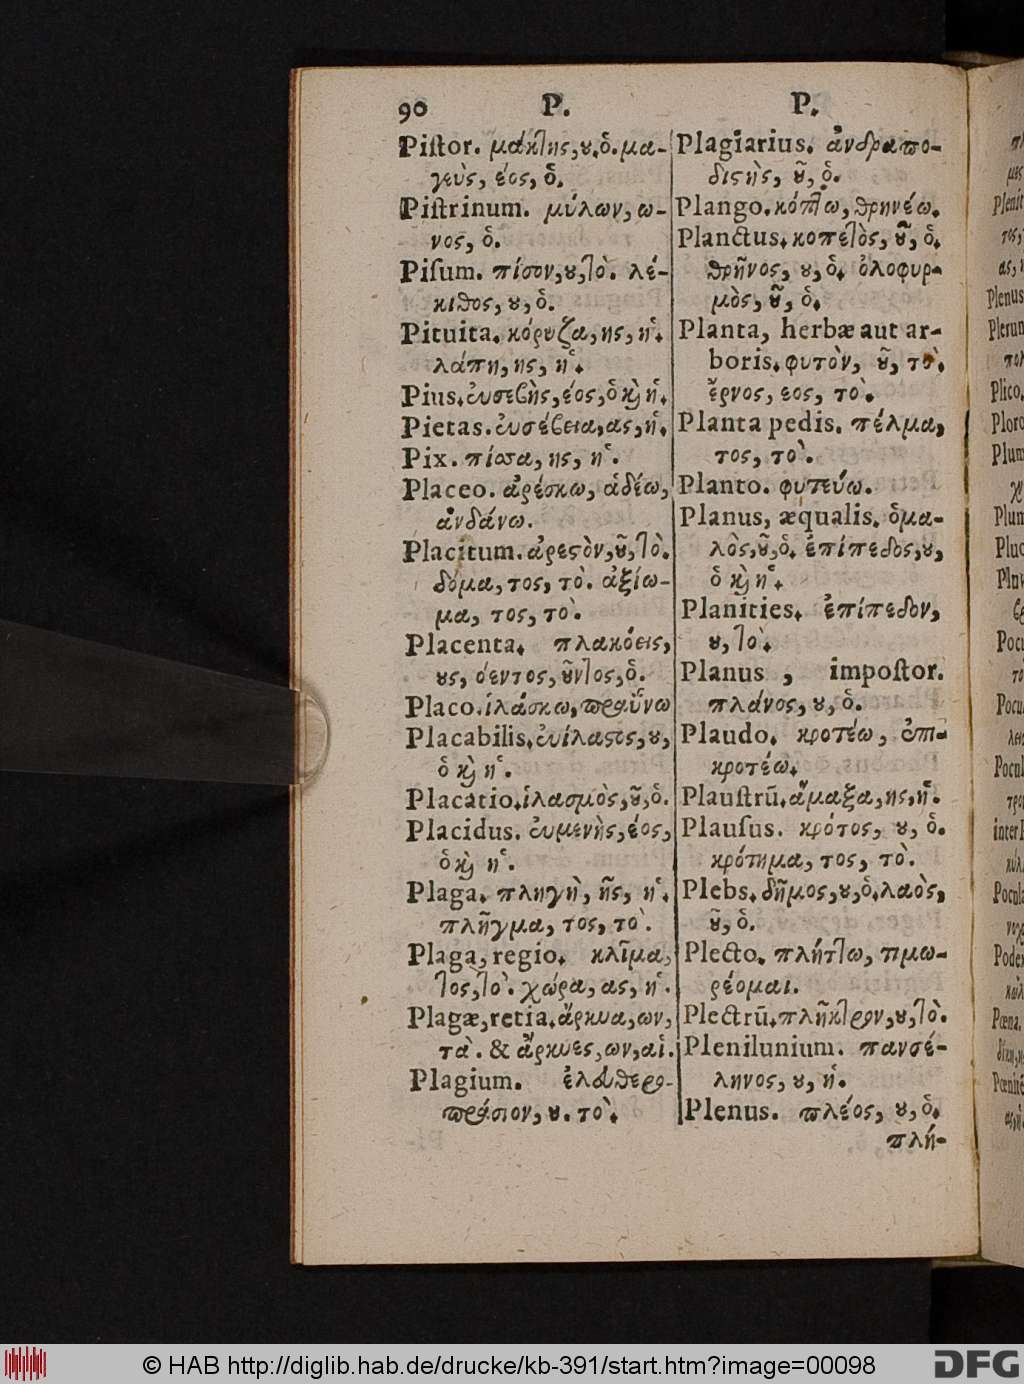 90 P. P.
Piſtor. μάκτης, ου, ὁ. μα-
γεὺς, έος, ὁ.
Piſtrinum. μύλων, ω-
νος, ὁ.
Piſum. πίσον, ου, τὸ. λέ-
κιθος, ου, ὁ.
Pituita. κόρυζα, ης, ἡ.
λάπη, ης, ἡ.
Pius. ἐυσεβὴς, έος, ὁ καὶ ἡ.
Pietas. ἐυσέβεια, ας, ἡ.
Pix. πίσσα, ης, ἡ.
Placeo. ἀρέσκω, ἁδέω,
ἁνδάνω.
Placitum. ἀρεστὸν, οῦ, τὸ.
δόμα, τος, τὸ. ἀξίω-
μα, τος, τὸ.
Placenta. πλακόεις,
ους, όεντος, οῦντος, ὁ.
Placo. ἱλάσκω, πραΰνω
Placabilis. ἐυίλαστος, ου,
ὁ καὶ ἡ.
Placatio. ἱλασμὸς, οῦ, ὁ.
Placidus. ἐυμενὴς, έος,
ὁ καὶ ἡ.
Plaga. πληγὴ, ῆς, ἡ.
πλῆγμα, τος, τὸ.
Plaga, regio. κλῖμα,
τος, τὸ. χώρα, ας, ἡ.
Plagæ, retia. ἄρκυα, ων,
τὰ. & ἄρκυες, ων, αἱ.
Plagium. ἐλευθερο-
πράσιον, ου. τὸ.
Plagiarius. ἀνδραπο-
διστὴς, οῦ, ὁ.
Plango. κόπτω, θρηνέω.
Planctus. κοπετὸς, οῦ, ὁ.
θρῆνος, ου, ὁ. ὀλοφυρ-
μὸς, οῦ, ὁ.
Planta, herbæ aut ar-
boris. φυτὸν, οῦ, τὸ.
ἔρνος, εος, τὸ.
Planta pedis. πέλμα,
τος, τὸ.
Planto. φυτεύω.
Planus, æqualis. ὁμα-
λὸς, οῦ, ὁ. ἐπίπεδος, ου,
ὁ καὶ ἡ.
Planities. ἐπίπεδον,
ου, τὸ.
Planus, impoſtor.
πλάνος, ου, ὁ.
Plaudo. κροτέω, ἐπι-
κροτέω.
Plauſtrū. ἅμαξα, ης, ἡ.
Plauſus. κρότος, ου, ὁ.
κρότημα, τος, τὸ.
Plebs. δῆμος, ου, ὁ. λαὸς,
οῦ, ὁ.
Plecto. πλήττω, τιμω-
ρέομαι.
Plectrū. πλῆκτρον, ου, τὸ.
Plenilunium. πανσέ-
ληνος, ου, ἡ.
Plenus. πλέος, ου, ὁ.
πλή-
Plenus
Plico.
© HAB http://diglib.hab.de/drucke/kb-391/start.htm?image=00098
DFG